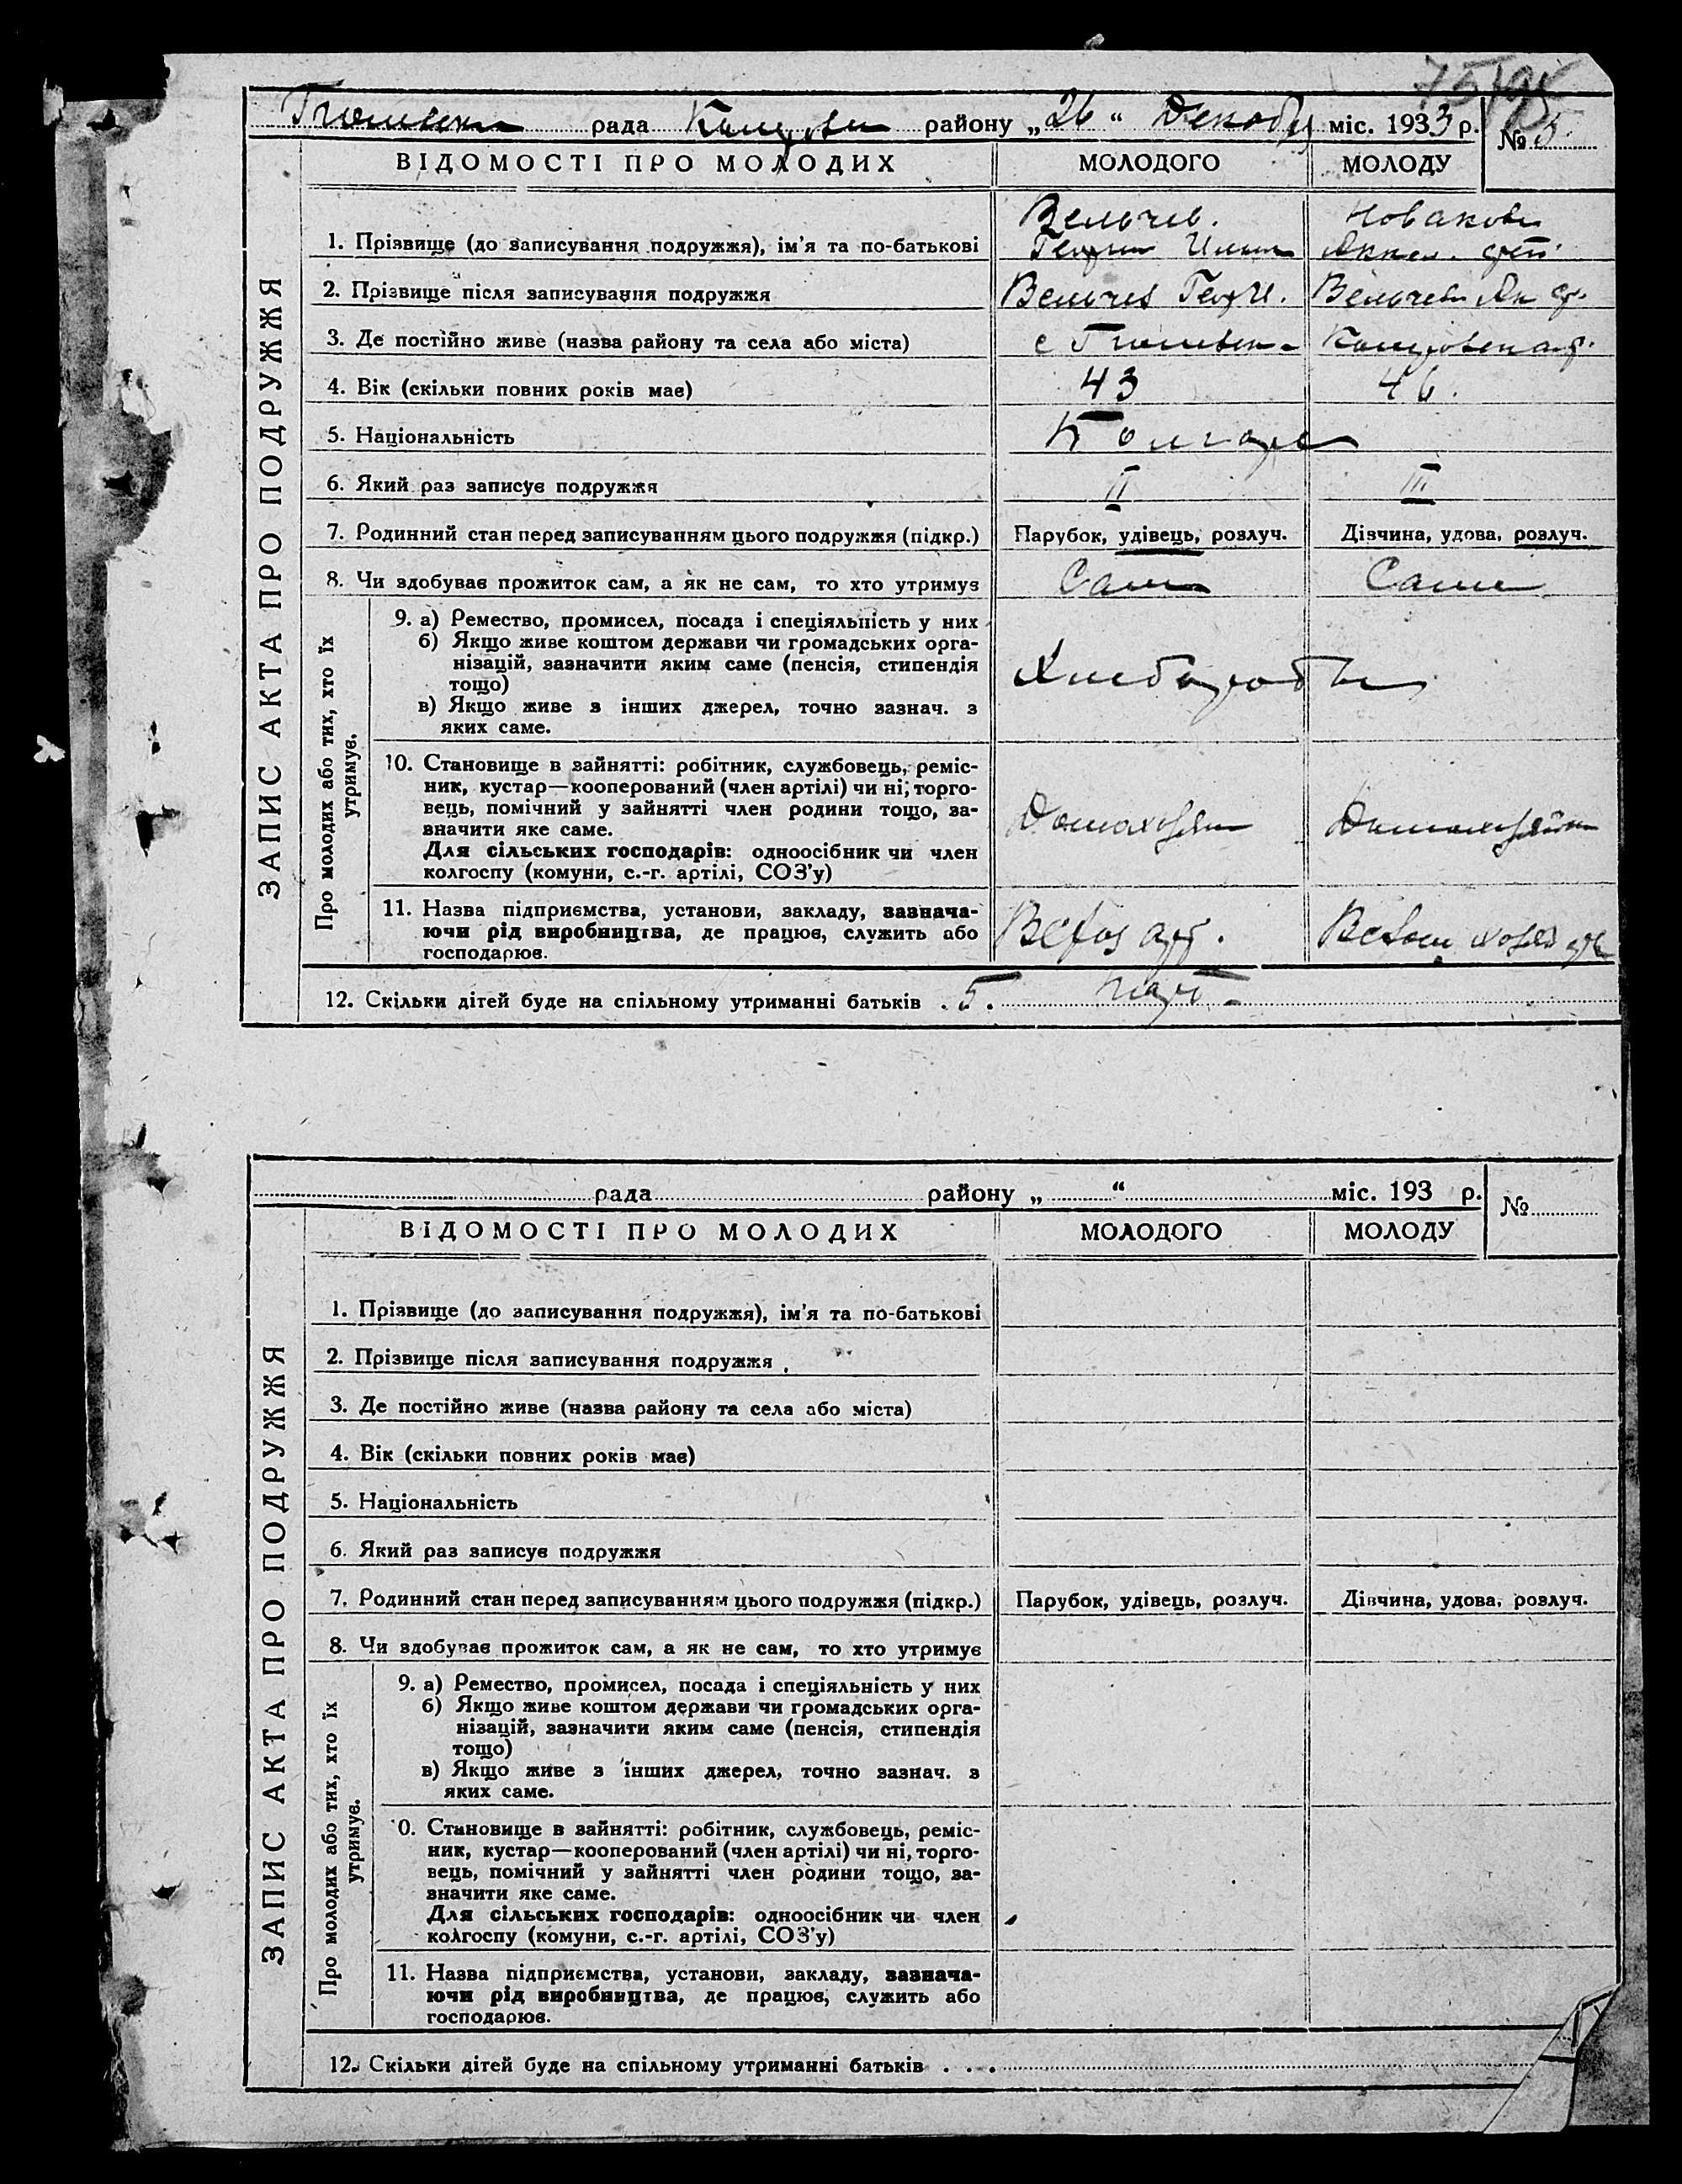 рада району „26“ Декабр міс. 1933 р. № 5
ВІДОМОСТІ ПРО МОЛОДИХ МОЛОДОГО МОЛОДУ
ЗАПИС АКТА ПРО ПОДРУЖЖЯ
Вельчев. Новакова
1. Прізвище (до записування подружжя), ім'я та по-батькові
2. Прізвище після записування подружжя Вельчев Вельчева
3. Де постійно живе (назва району та села або міста) с
4. Вік (скільки повних років має) 43 46.
5. Національність Болгаре
6. Який раз записує подружжя II III
7. Родинний стан перед записуванням цього подружжя (підкр.) Парубок, удівець, розлуч. Дівчина, удова, розлуч.
8. Чи здобуває прожиток сам, а як не сам, то хто утримує Сам Сама
Про молодих або тих, хто їх
утримує.
9. а) Ремество, промисел, посада і спеціяльність у них
б) Якщо живе коштом держави чи громадських орга-
нізацій, зазначити яким саме (пенсія, стипендія
тощо)
в) Якщо живе з інших джерел, точно зазнач. з
яких саме.
10. Становище в зайнятті: робітник, службовець, реміс-
ник, кустар—кооперований (член артілі) чи ні, торго-
вець, помічний у зайнятті член родини тощо, за-
значити яке саме.
Для сільських господарів: одноосібник чи член
колгоспу (комуни, с.-г. артілі, СОЗ'у)
11. Назва підприємства, установи, закладу, зазнача-
ючи рід виробництва, де працює, служить або
господарює.
12. Скільки дітей буде на спільному утриманні батьків . 5.
рада району „ “ міс. 193 р. №
ВІДОМОСТІ ПРО МОЛОДИХ МОЛОДОГО МОЛОДУ
ЗАПИС АКТА ПРО ПОДРУЖЖЯ
1. Прізвище (до записування подружжя), ім'я та по-батькові
2. Прізвище після записування подружжя
3. Де постійно живе (назва району та села або міста)
4. Вік (скільки повних років має)
5. Національність
6. Який раз записує подружжя
7. Родинний стан перед записуванням цього подружжя (підкр.) Парубок, удівець, розлуч. Дівчина, удова, розлуч.
8. Чи здобуває прожиток сам, а як не сам, то хто утримує
Про молодих або тих, хто їх
утримує.
9. а) Ремество, промисел, посада і спеціяльність у них
б) Якщо живе коштом держави чи громадських орга-
нізацій, зазначити яким саме (пенсія, стипендія
тощо)
в) Якщо живе з інших джерел, точно зазнач. з
яких саме.
0. Становище в зайнятті: робітник, службовець, реміс-
ник, кустар—кооперований (член артілі) чи ні, торго-
вець, помічний у зайнятті член родини тощо, за-
значити яке саме.
Для сільських господарів: одноосібник чи член
колгоспу (комуни, с.-г. артілі, СОЗ'у)
11. Назва підприємства, установи, закладу, зазнача-
ючи рід виробництва, де працює, служить або
господарює.
12. Скільки дітей буде на спільному утриманні батьків . . .